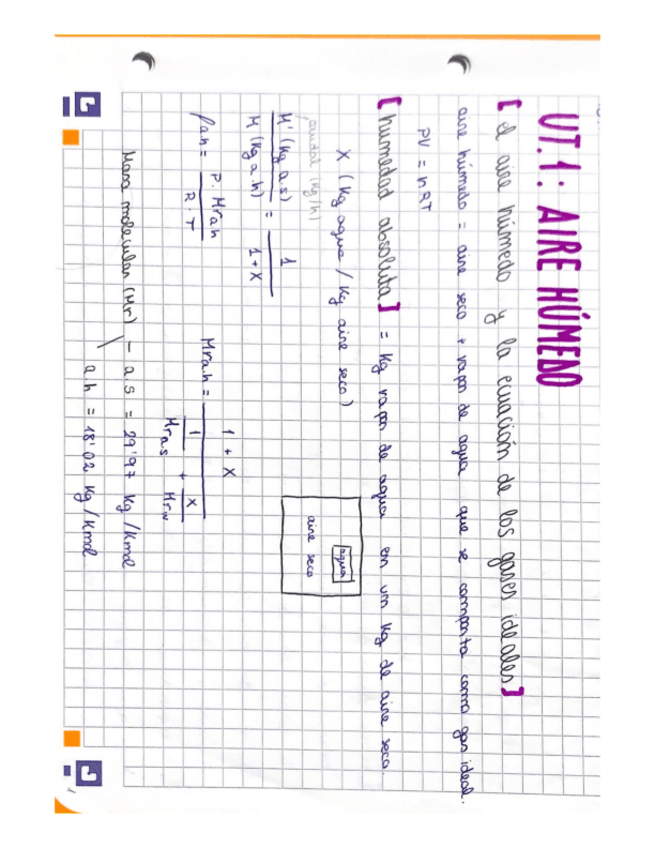 UT.1: AIRE HÚMEDO
[el aire húmedo y la ecuación de los gases ideales]
aire húmedo = aire seco + vapor de agua que se comporta como gas ideal.
PV = nRT
[humedad absoluta] = kg vapor de agua en un kg de aire seco.
X (kg agua / kg aire seco)
agua
aire seco
caudal (kg/h)
M' (kg a.s) / M (kg a.h) = 1 / 1+X
ρa.h = P. Mra.h / R.T
Mra.h = 1 + X / (1 / Mra.s + X / Mrw)
Masa molecular (Mr) - a.s = 29'97 kg/kmol
a.h = 18'02 kg/kmol